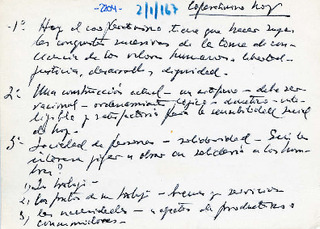 -204- 2/1/67 Cooperativismo hoy
-1º: Hoy el cooperativismo tiene que hacer suyas
las conquistas sucesivas de la toma de con-
ciencia de los valores humanos: libertad-
justicia, desarrollo y dignidad.
2º: Una construcción actual - debe ser
racional - ordenamiento lógico -
y satisfactorio para la sensibilidad social
de hoy.
3º: Sociedad de personas - solidaridad -
interesa fijar u obrar en solidario a los hom-
bres?
1) Su trabajo -
2) Los frutos de su trabajo - bienes y servicios
3) las necesidades - aspectos de productores o
consumidores -